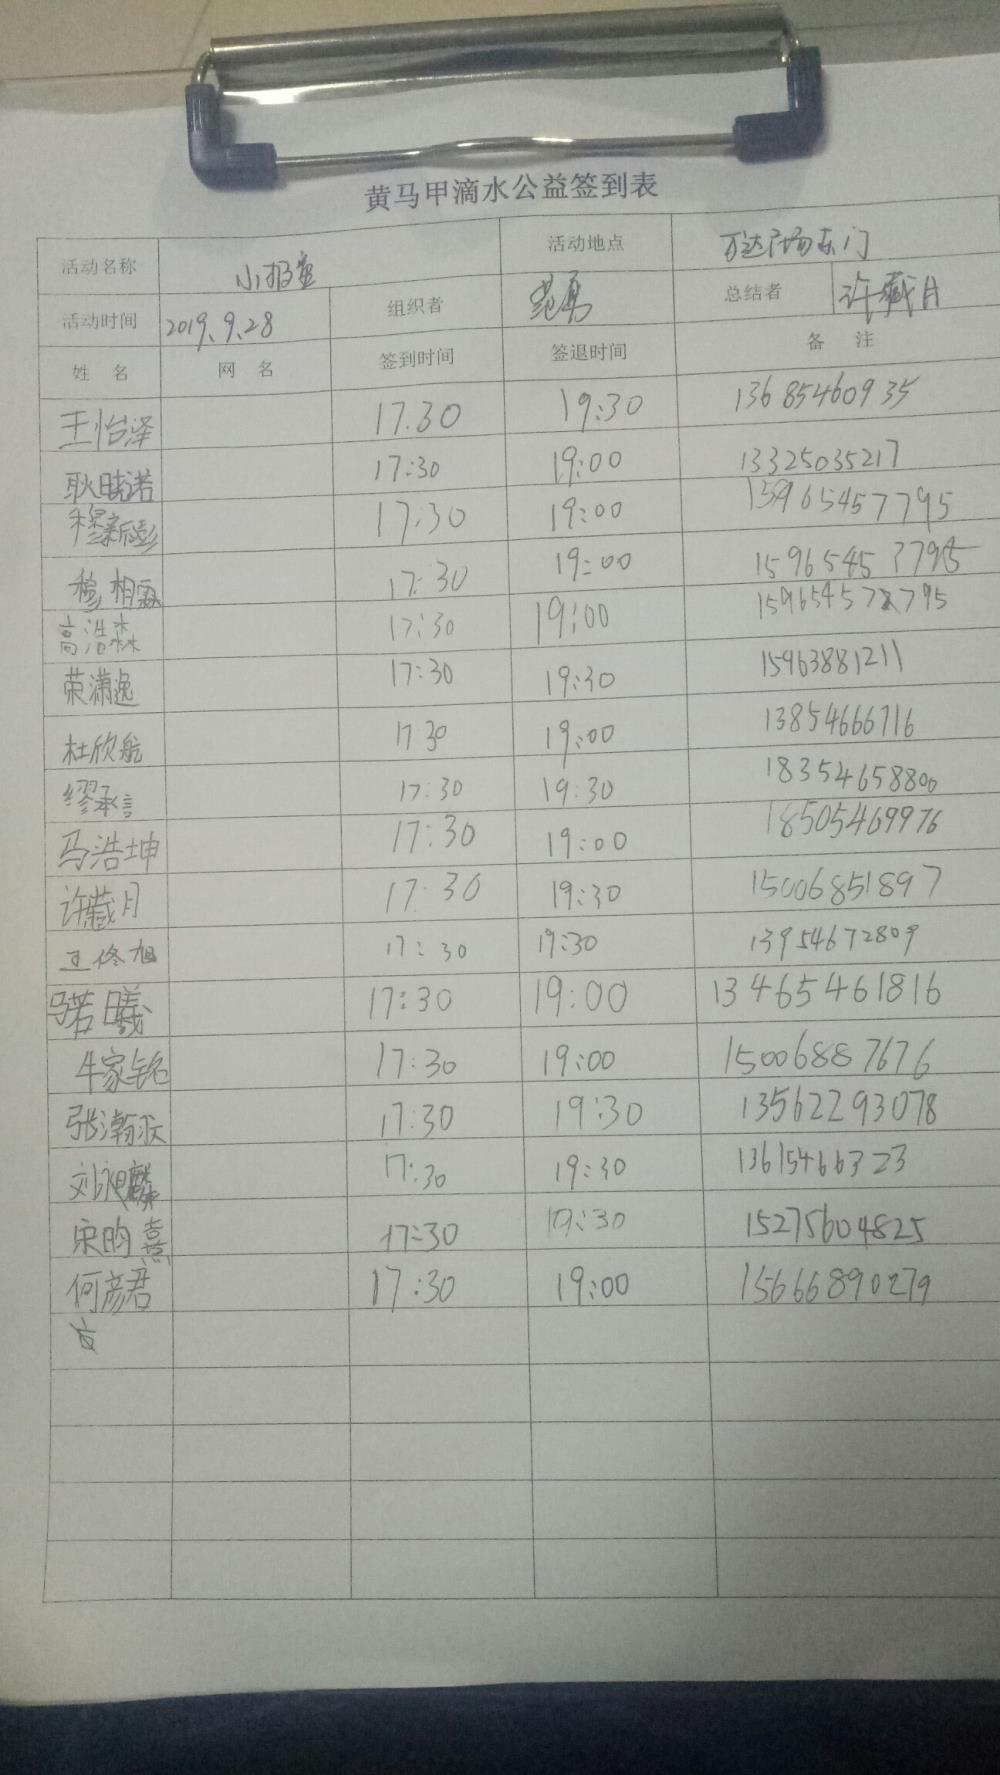 黄马甲滴水公益签到表
活动名称 小报童 活动地点 万达广场东门
活动时间 2019.9.28 组织者 范勇 总结者 许藏月
姓 名 网 名 签到时间 签退时间 备 注
王怡泽 17.30 19:30 13685460935
耿晴诺 17:30 19:00 13325035217
穆新彭 17:30 19:00 15965457795
穆相霖 17:30 19:00 15965457795
高浩森 17:30 19:00 15965457795
荣潇逸 17:30 19:30 15963881211
杜欣航 17 30 19:00 13854666716
缪承言 17:30 19:30 18354658800
马浩坤 17:30 19:00 18505469976
许藏月 17:30 19:30 15006851897
王佟旭 17:30 19:30 13954672809
马若曦 17:30 19:00 13465461816
牛家铭 17:30 19:00 15006887676
张瀚 17:30 19:30 13562293078
刘昶麟 17:30 19:30 13615466323
宋昀熹 17:30 19:30 15275604825
何彦君 17:30 19:00 15666890279